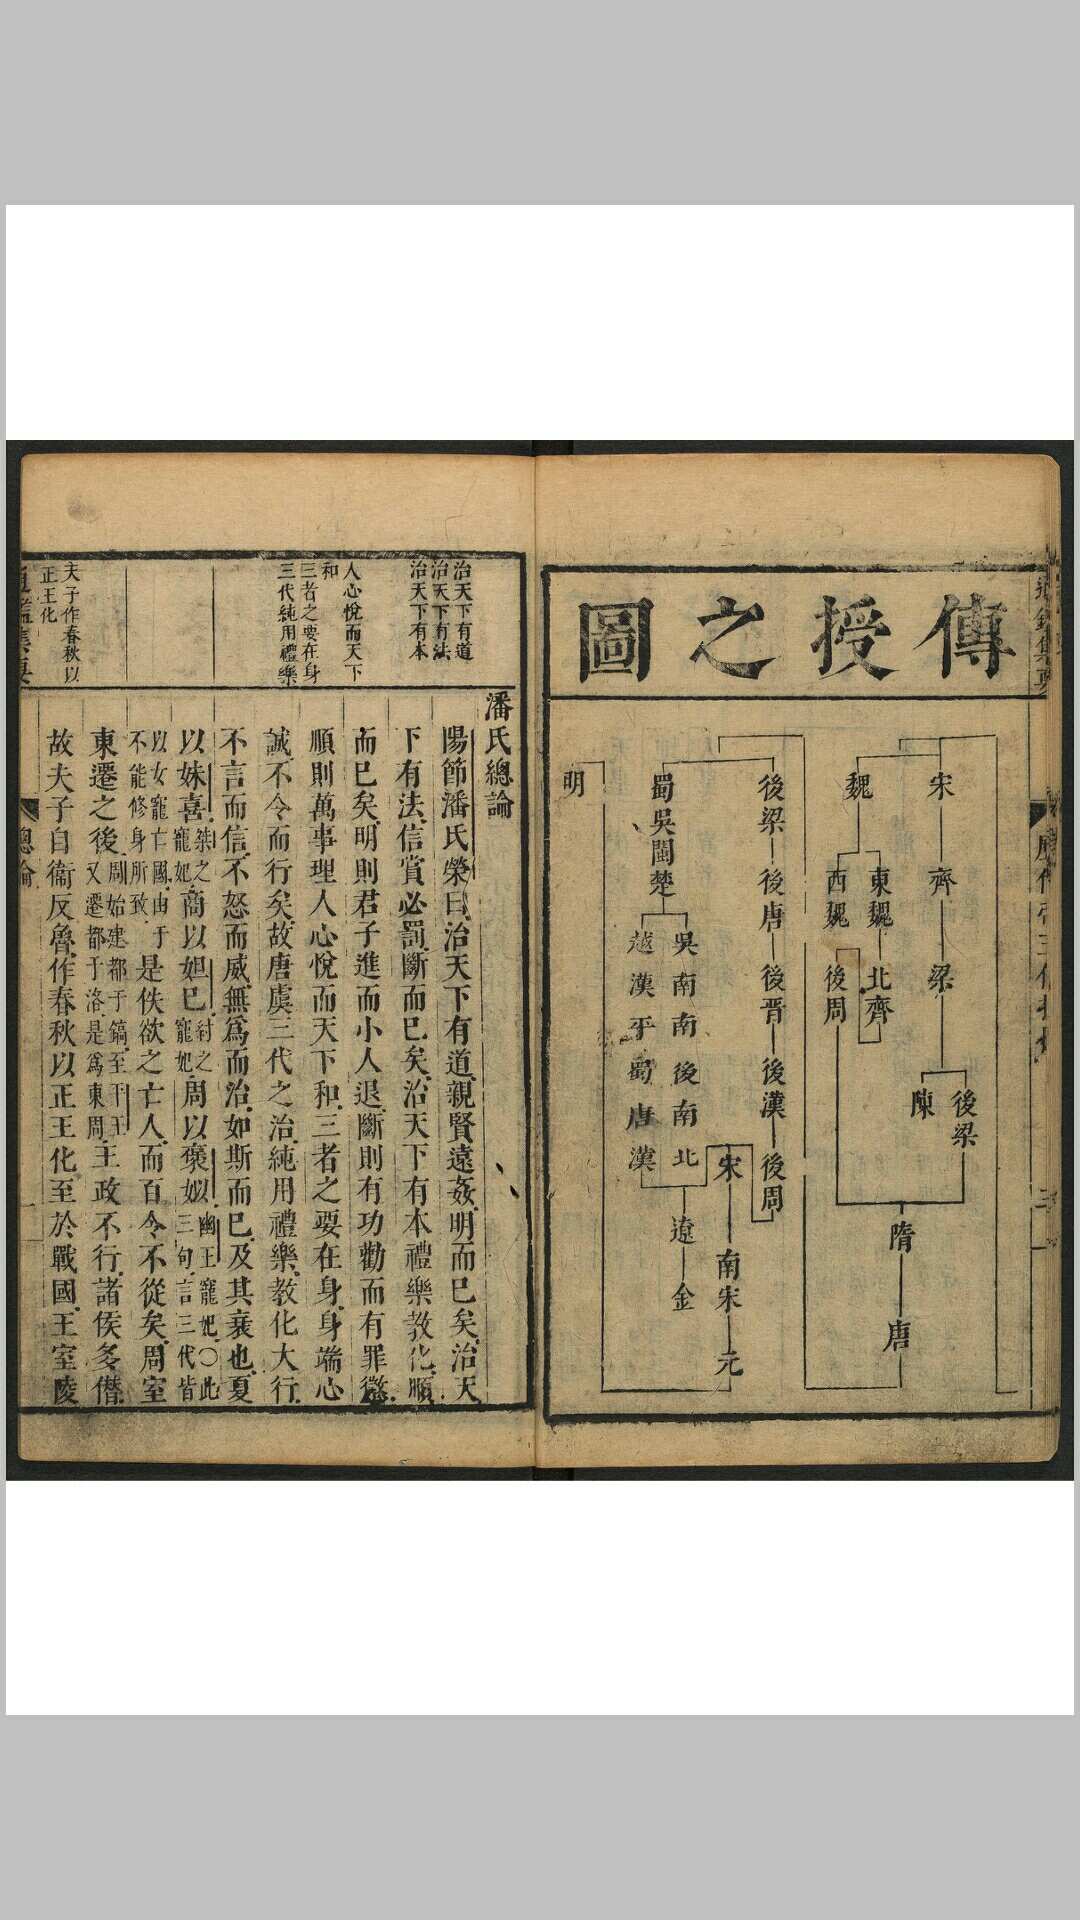 傳授之圖
宋
齊
梁
後梁
陳
魏
東魏
西魏
北齊
後周
隋
唐
後梁
後唐
後晋
後漢
後周
蜀吳閩楚
吳南南後南北
越漢平蜀唐漢
宋
遼
金
南宋
元
明
治天下有道
治天下有法
治天下有本
人心悅而天下
和
三者之要在身
三代純用禮樂
夫子作春秋以
正王化
潘氏總論
陽節潘氏榮曰治天下有道親賢遠姦明而巳矣治天
下有法信賞必罰斷而巳矣治天下有本禮樂教化順
而巳矣明則君子進而小人退斷則有功勸而有罪懲
順則萬事理人心悅而天下和三者之要在身身端心
誠不令而行矣故唐虞三代之治純用禮樂教化大行
不言而信不怒而威無為而治如斯而巳及其衰也夏
以妹喜桀之寵妃商以妲巳紂之寵妃周以褒姒幽王寵妃〇此三句言三代皆
以女寵亡國由于不能修身所致是佚欲之亡人而百令不從矣周室
東遷之後周始建都于鎬至平王又遷都于洛是爲東周王政不行諸侯多僭
故夫子自衞反魯作春秋以正王化至於戰國王室陵
總論